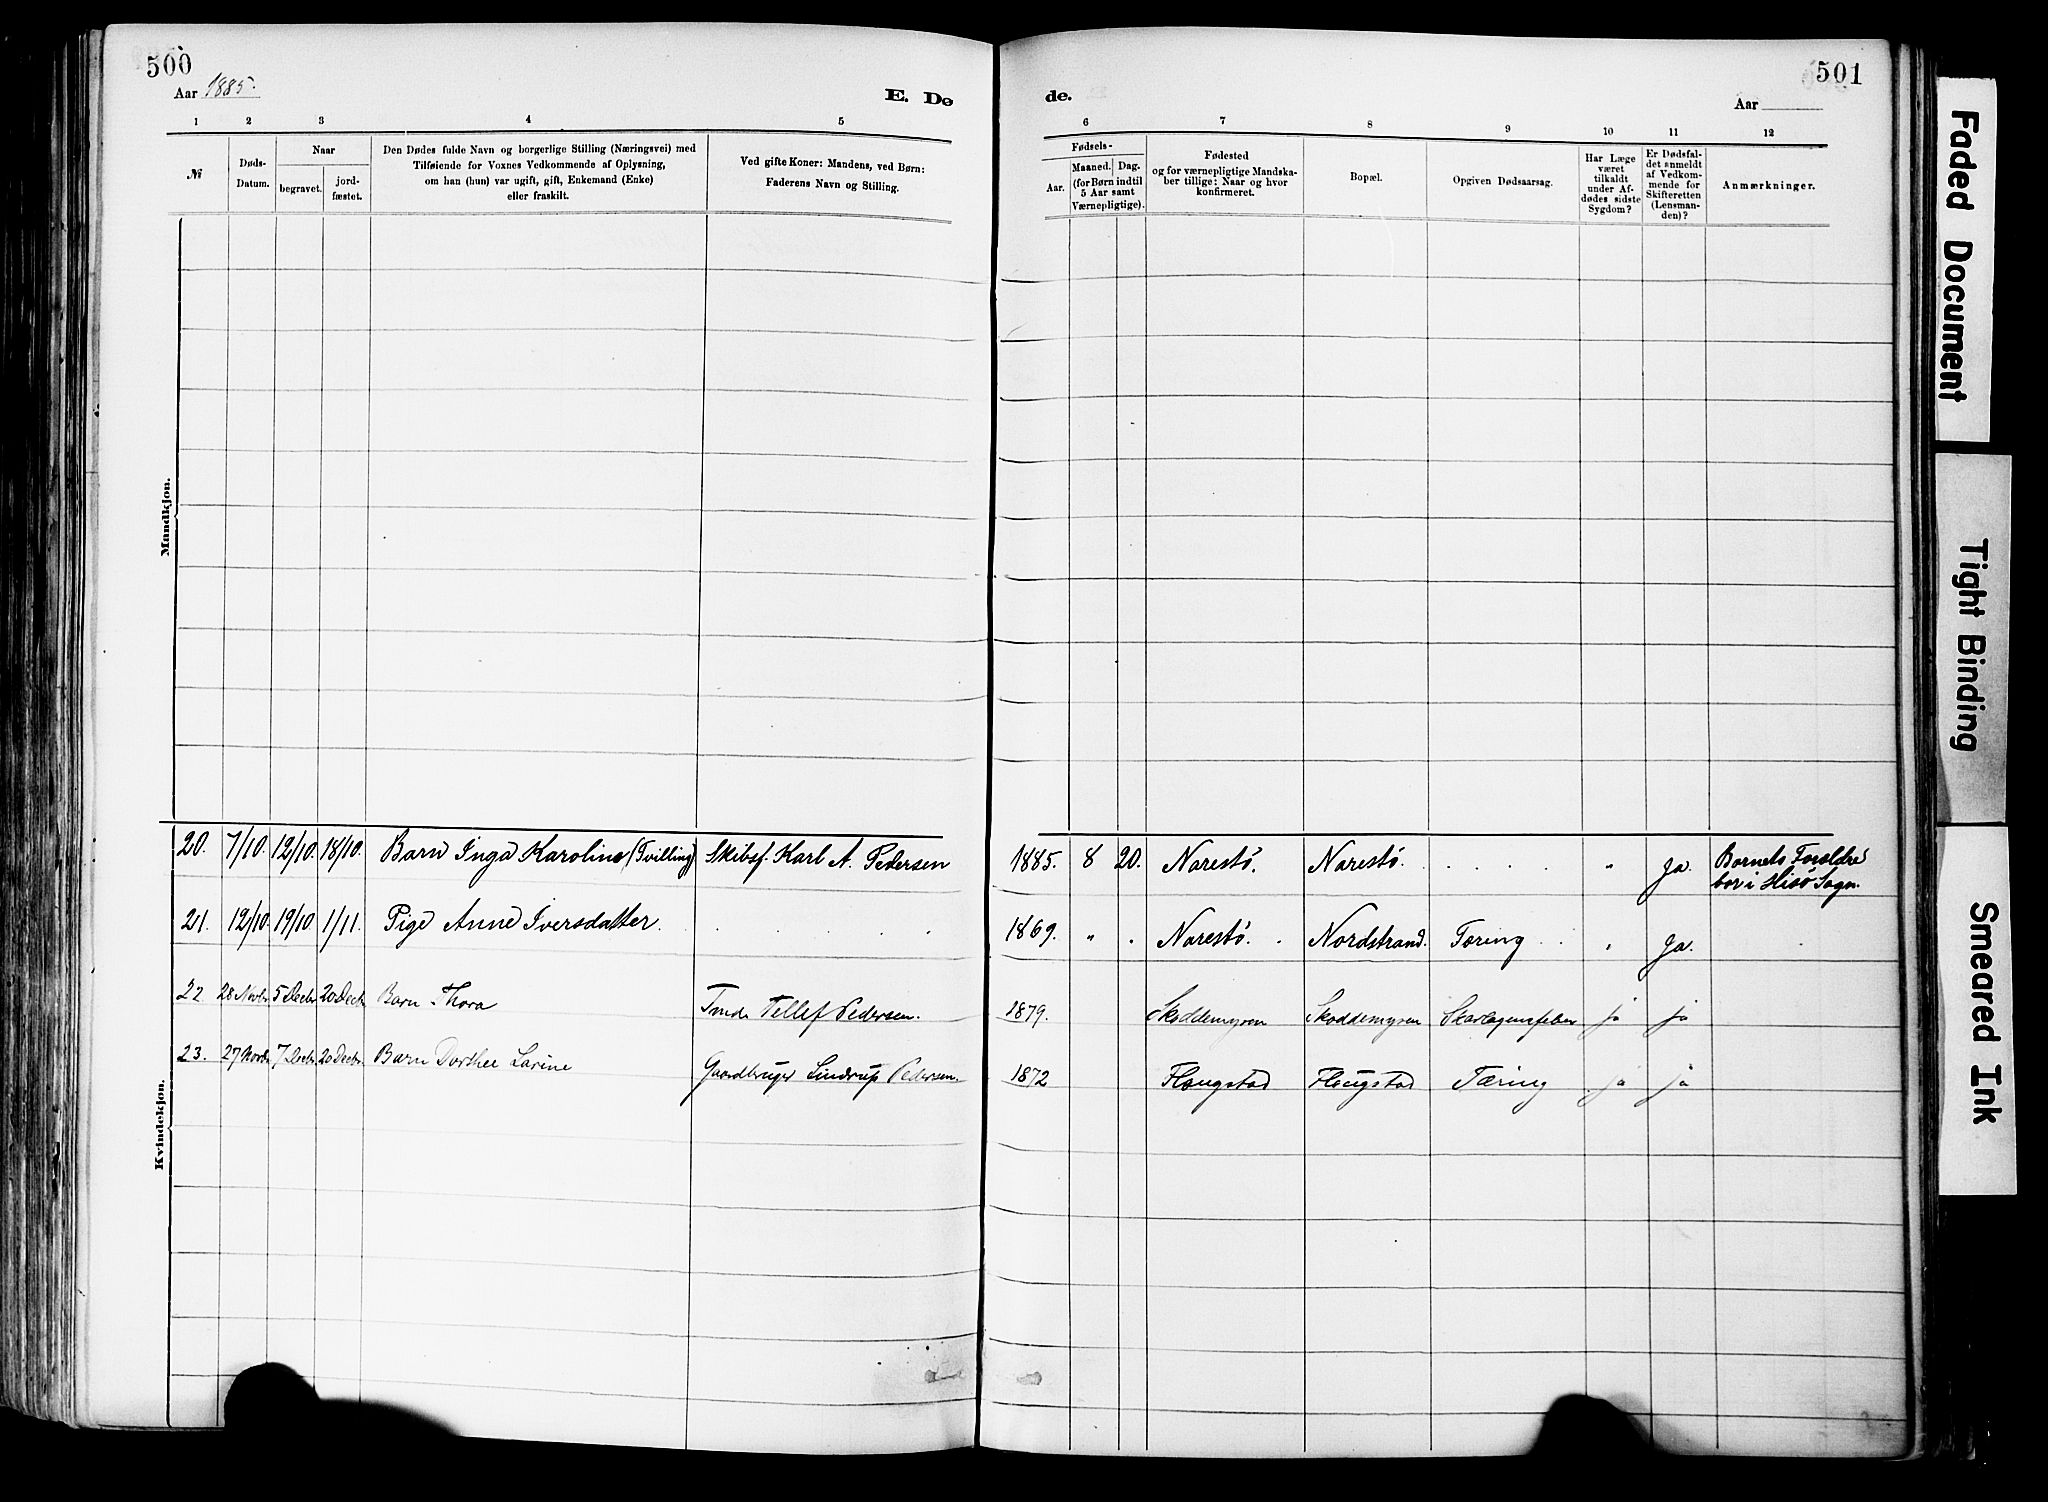 500
Aar 1885.
E. Dø
1 2 3 4 5
№
Døds-
Datum.
Naar
begravet.
jord-
fæstet.
Den Dødes fulde Navn og borgerlige Stilling (Næringsvei) med
Tilføiende for Voxnes Vedkommende af Oplysning,
om han (hun) var ugift, gift, Enkemand (Enke)
eller fraskilt.
Ved gifte Koner: Mandens, ved Børn:
Faderens Navn og Stilling.
Mandkjøn.
Kvindekjøn.
501
de.
Aar
6 7 8 9 10 11 12
Fødsels-
Aar.
Maaned. Dag.
(for Børn indtil
5 Aar samt
Værnepligtige).
Fødested
og for værnepligtige Mandska-
ber tillige: Naar og hvor
konfirmeret.
Bopæl.
Opgiven Dødsaarsag.
Har Læge
været
tilkaldt
under Af-
dødes sidste
Sygdom?
Er Dødsfal-
det anmeldt
af Vedkom-
mende for
Skifteretten
(Lensman-
den)?
Anmærkninger.
20. 7/10. 12/10. 18/10. Barn Inga Karoline (Tvilling) Skibsf. Karl A. Pedersen 1885. 8 20. Narestø. Narestø. . . . . " Ja. Barnets Forældre
bor i Hisø Sogn.
21. 12/10. 19/10. 1/11. Pige Anne Iversdatter. . . . . 1869. " . Narestø. . Nordstrand. Tæring . . " Ja.
22. 28 Novbr 5 Decbr 20 Decbr Barn Thora Tmd. Tellef Pedersen. 1879. Skoddemyren Skoddemyren Skarlagensfeber ja ja
23. 27 Novbr 7 Decbr 20 Decbr Barn Dorthee Larine Gaardbruger Lindrup Pedersen. 1872 Flaugstad Flaugstad Tæring ja ja
Faded Document
Tight Binding
Smeared Ink